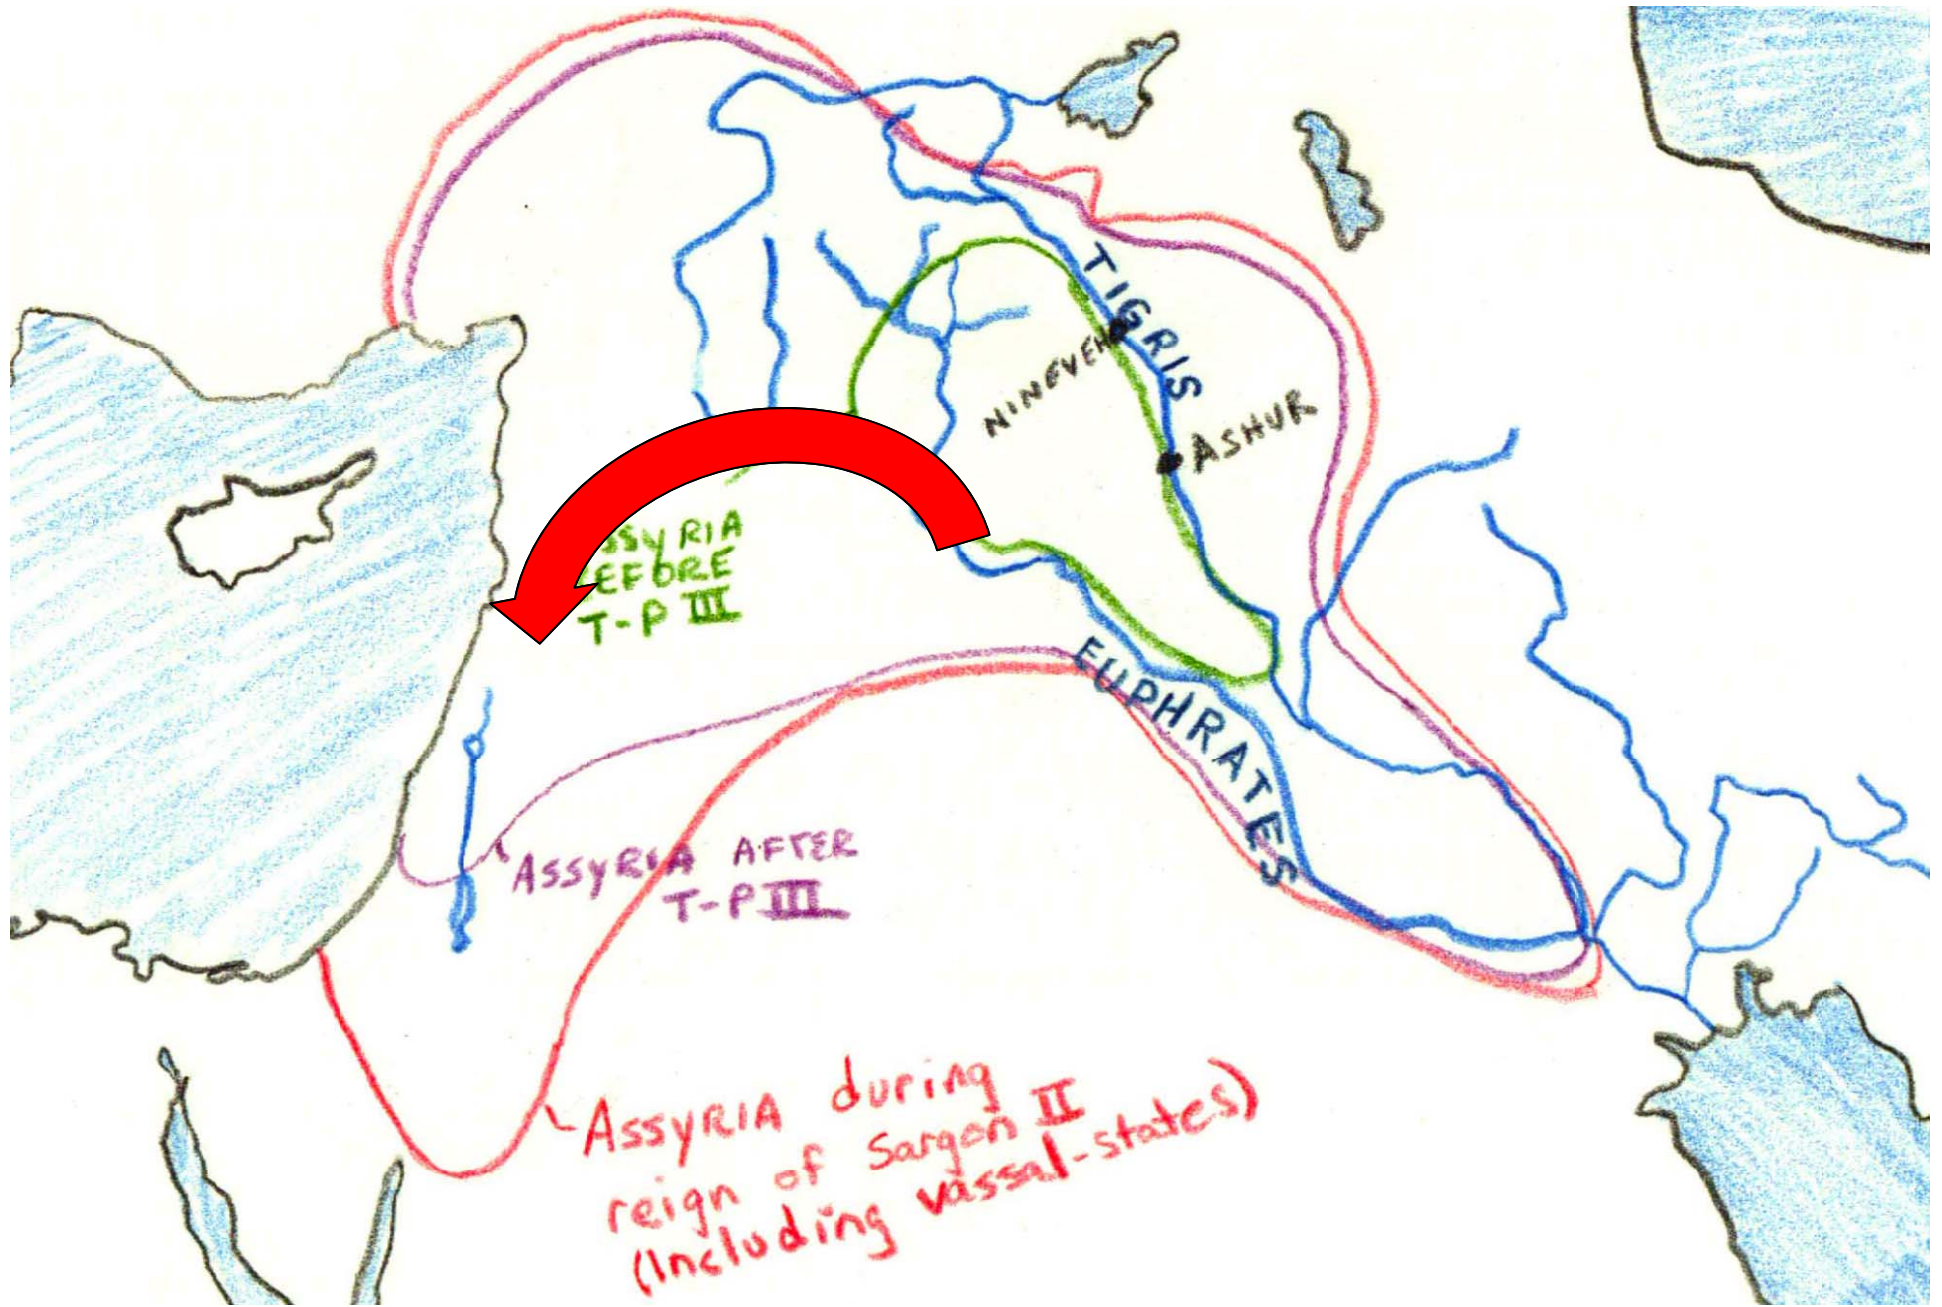 TIGRIS
NINEVEH
ASHUR
SSYRIA
EFORE
T-P III
EUPHRATES
ASSYRIA AFTER
T-P III
ASSYRIA during
reign of Sargon II
(Including vassal-states)